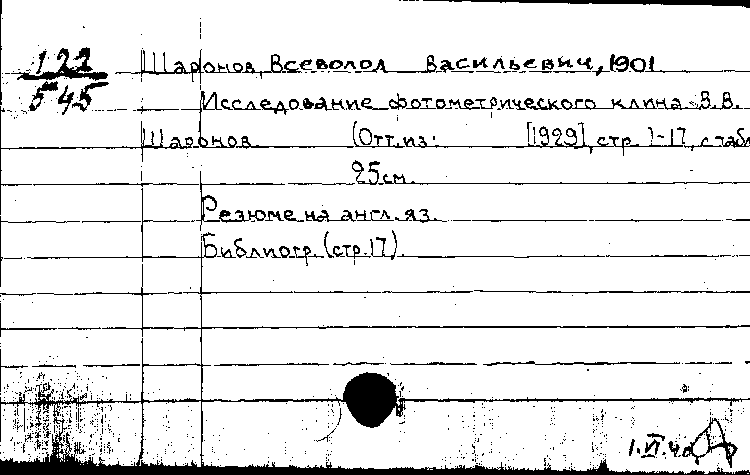 122
545
Шаронов, Всеволод Васильевич, 1901
Исследование фотометрического клина. В.В.
Шаронов. (Отт.из: [1929], стр. 1-17, с табл
25см.
Резюме на англ. яз.
Библиогр. (стр.17).
1.VI.40